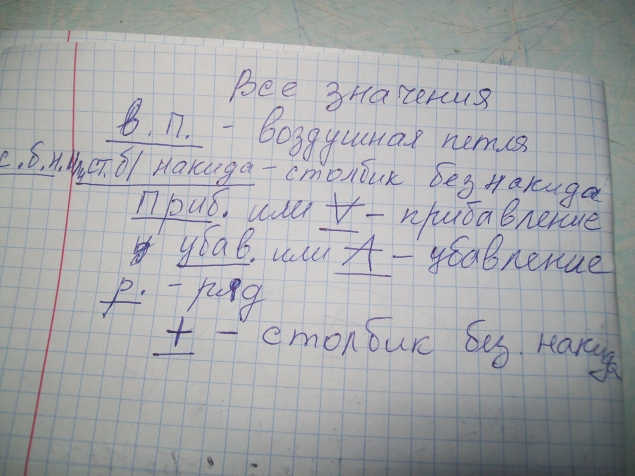 Все значения
в.п. - воздушная петля
с.б.н. или ст.б/накида - столбик без накида
Приб. или V - прибавление
убав. или A - убавление
р. - ряд
+ - столбик без. накида